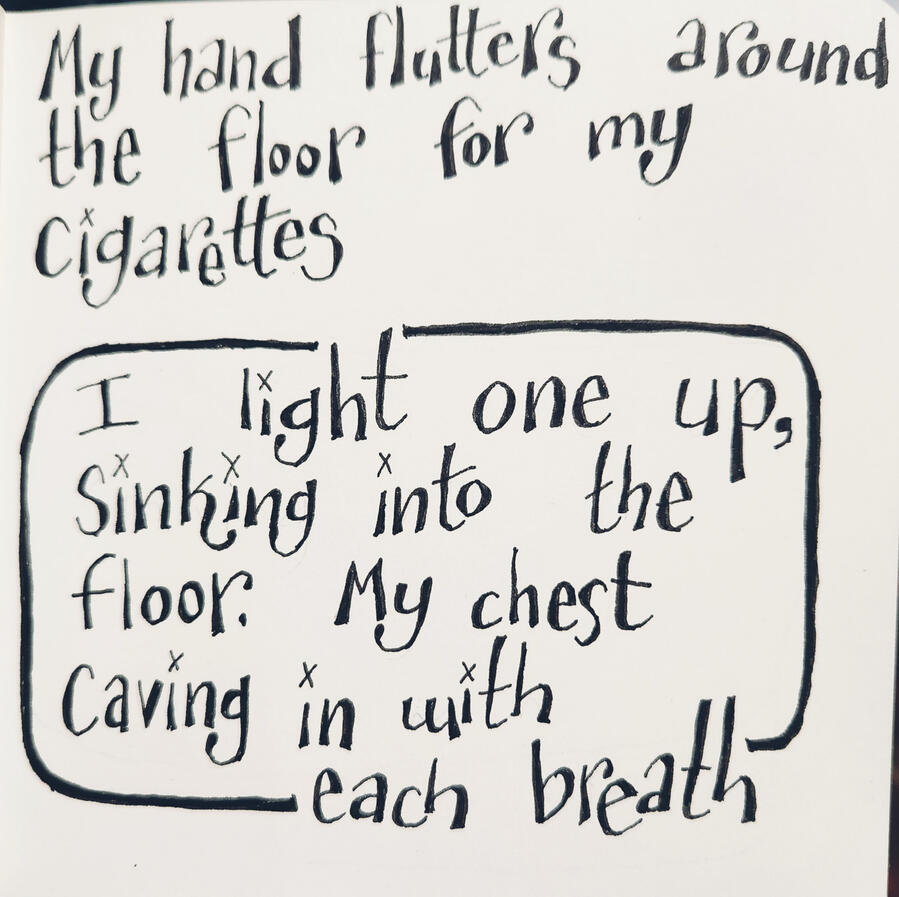 My hand flutters around
the floor for my
cigarettes
I light one up,
Sinking into the
floor. My chest
Caving in with
each breath